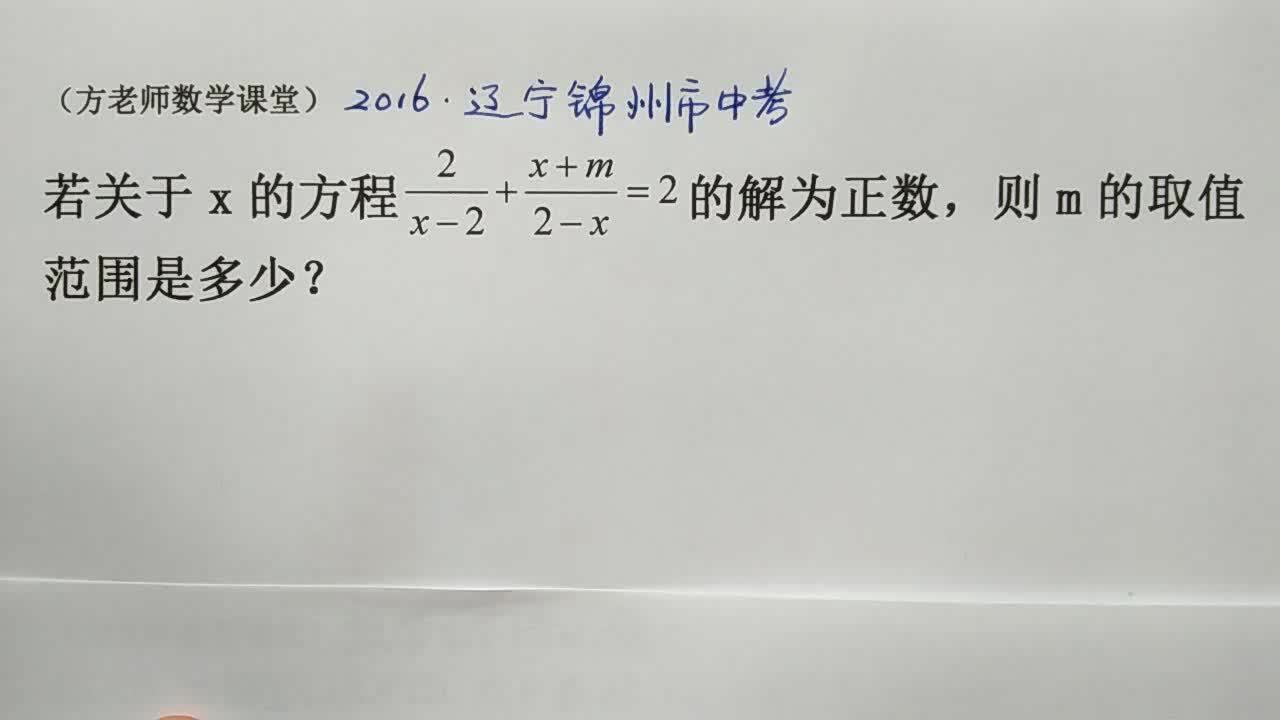 （方老师数学课堂）2016·辽宁锦州市中考
若关于 x 的方程 \frac{2}{x-2}+\frac{x+m}{2-x}=2 的解为正数，则 m 的取值
范围是多少？